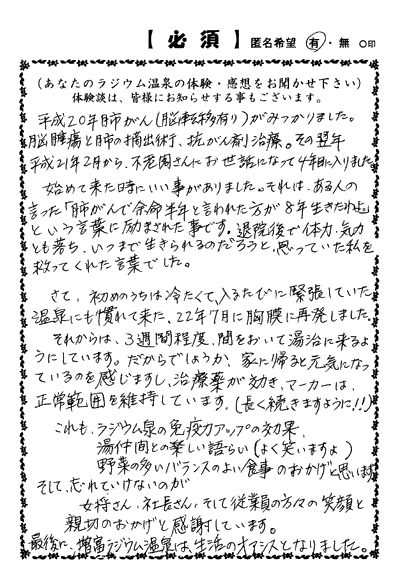 【必須】 匿名希望 有・無 ○印
(あなたのラジウム温泉の体験・感想をお聞かせ下さい)
体験談は、皆様にお知らせする事もございます。
平成20年肺がん(脳転移有り)がみつかりました。
脳腫瘍と肺の摘出術、抗がん剤治療。その翌年
平成21年2月から、不老閣さんにお世話になって4年目に入りました
始めて来た時にいい事がありました。それは、ある人の
言った「肺がんで余命半年と言われた方が8年生きたわよ」
という言葉に励まされた事です。退院後で体力、気力
とも落ち、いつまで生きられるのだろうと、思っていた私を
救ってくれた言葉でした。
さて、初めのうちは冷たくて、入るたびに緊張していた
温泉にも慣れて来た、22年7月に胸膜に再発しました。
それからは、3週間程度、間をおいて湯治に来るよ
うにしています。だからでしょうか、家に帰ると元気になっ
ているのを感じますし、治療薬が効き、マーカーは、
正常範囲を維持しています。(長く続きますように!!)
これも、ラジウム泉の免疫力アップの効果、
湯仲間との楽しい語らい(よく笑いますよ)
野菜の多いバランスのよい食事のおかげと思います
そして、忘れていけないのが
女将さん、社長さん、そして従業員の方々の笑顔と
親切のおかげと感謝しています。
最後に、増富ラジウム温泉は、生活のオアシスとなりました。